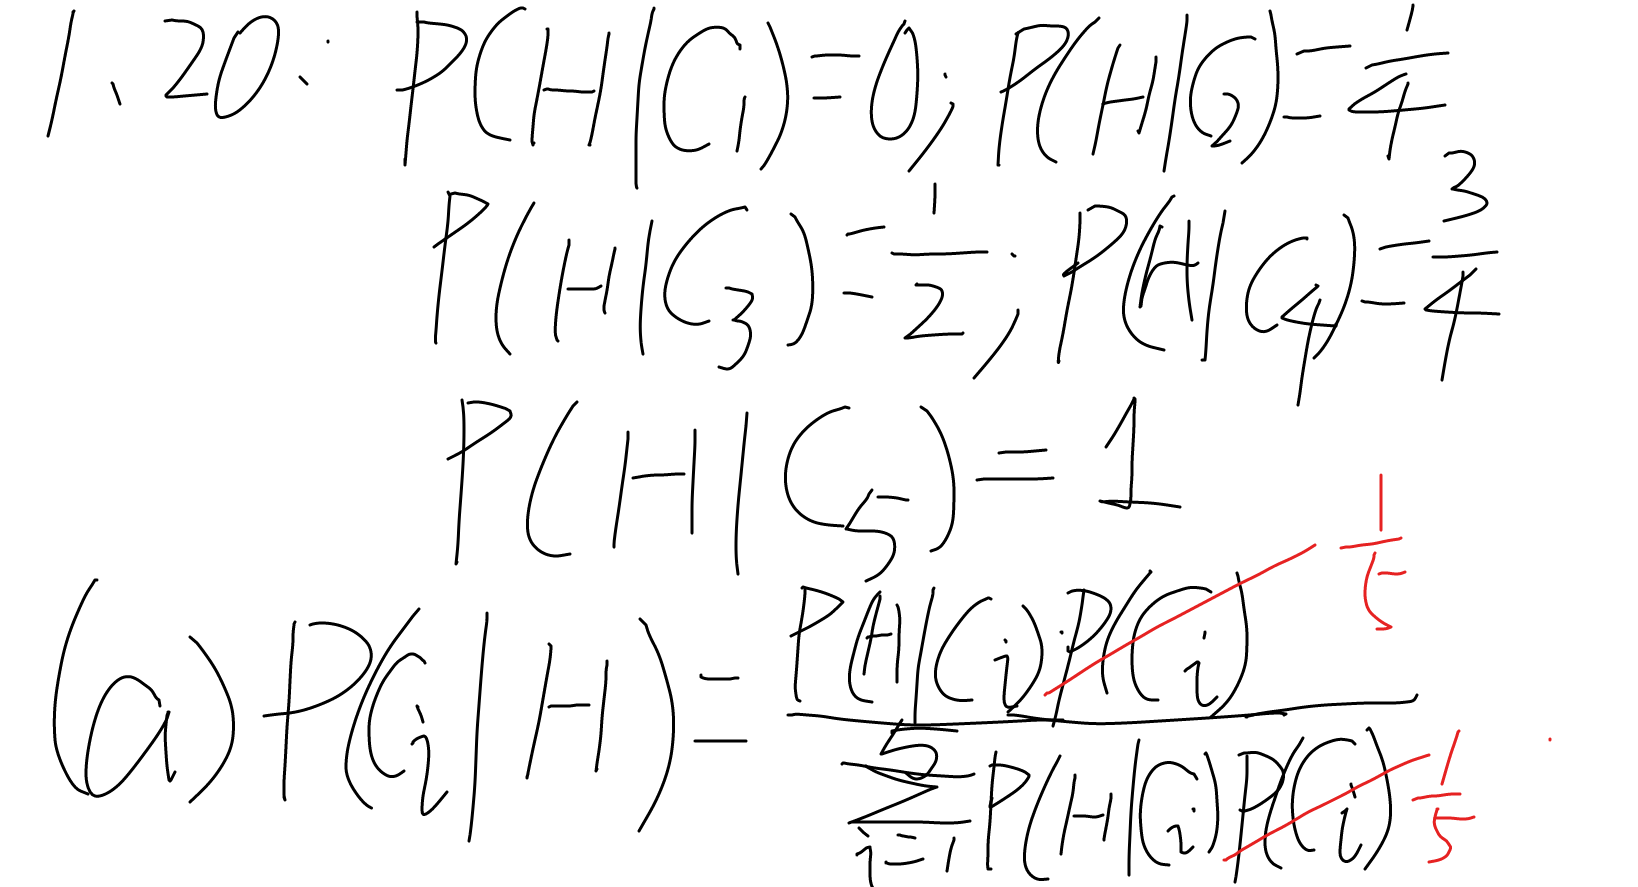 1、20: P(H|C₁)=0; P(H|C₂)=1/4
P(H|C₃)=1/2; P(H|C₄)=3/4
P(H|C₅)=1
1/5
(a) P(Cᵢ|H)= P(H|Cᵢ)P(Cᵢ)
5
∑ P(H|Cᵢ)P(Cᵢ) 1/5
i=1